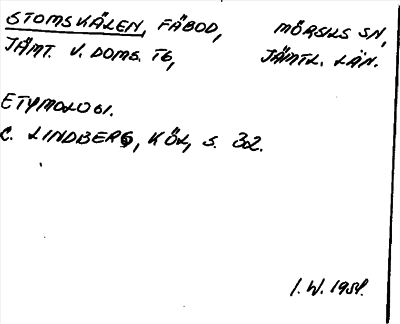 STOMSKÄLEN, FÄBOD, MÖRSILS SN,
JÄMT. V. DOMS. TG, JÄMTL. LÄN.
ETYMOLOGI.
C. LINDBERG, KÖL, S. 32.
I. W. 1954.